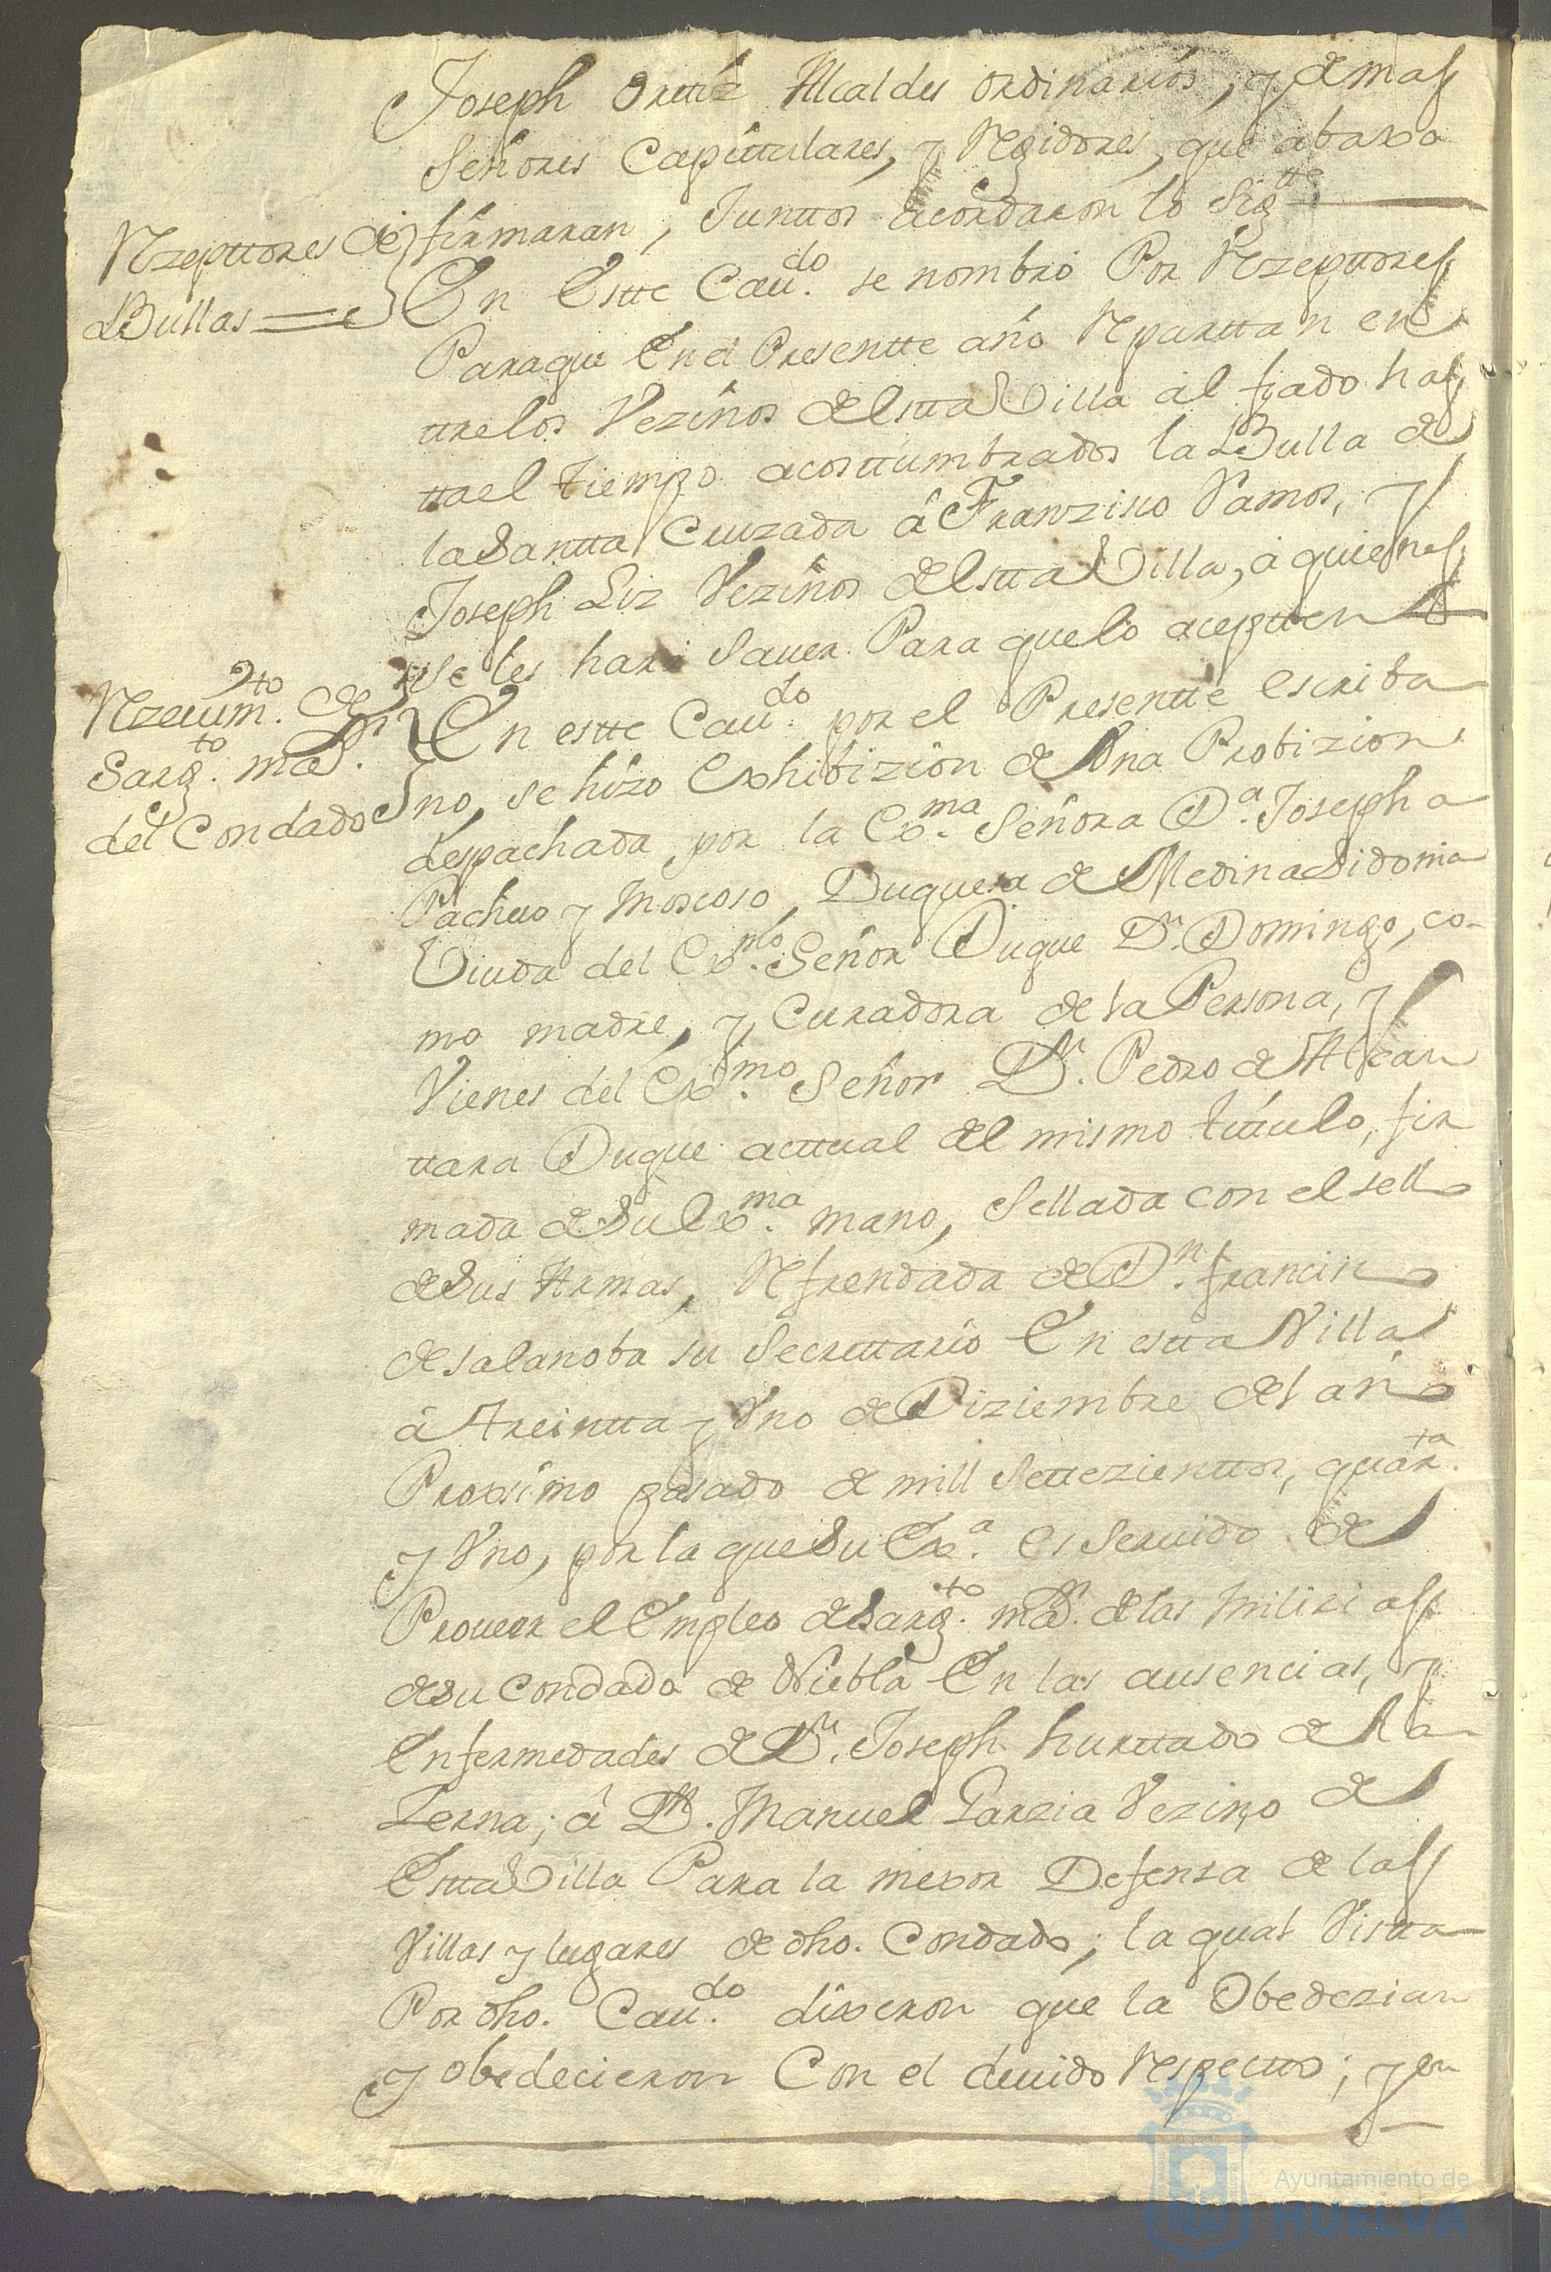 Joseph Orttiz Alcaldes ordinarios, y demas
Señores Capittulares, y Rejidores, que abaxo
firmaran, Junttos acordaron lo Sigtte
Rzepttores de
Bullas
En Estte Caudo. se nombró Por Rezepttores
Paraque En el Presentte año Reparttan en
ttrelos Vezinos de Estta Villa al fiado has
tta el tiempo acosttumbrados la Bulla de
la Santta Cruzada â Franzisco Ramos, y
Joseph Liz Vezinos de Estta Villa, a quienes
se les hara Sauer Para quelo acepten
Rzeuimto. de
Sargto. mar.
del Condado
En estte Caudo. por el Presentte escriba
no, se hizo Exhibizion de Vna Probizion
despachada por la Exma. Señora Da. Josepha
Pacheco y Moscoso, Duquesa de Medinasidonia
Viuda del Exmo. Señor Duque Dn. Domingo, co-
mo madre, y Curadora de la Persona, y
Vienes del Exmo. Señor Dn. Pedro de Alcan
ttara Duque acttual del mismo tittulo, fir
mada de Su Exma. mano, Sellada con el sello
de Sus Armas, Refrendada de Dn. francisco
de salanoba su Secrettario En estta Villa
â Treintta y Vno de Diziembre del año
Proximo pasado de mill Settezienttos, quarta.
y Vno, por la que Su Exa. es Seruido de
Proueer el Empleo de Sargto. mar. de las Milizias
de su Condado de Niebla En las ausencias, y
Enfermedades de Dn. Joseph hurttado de la
Zerna; â Dn. Manuel Garzia Vezino de
Estta Villa Para la mexor Defensa de las
Villas y lugares de dho. Condado; la qual Vistta
Por dho. Caudo. dixeron que la Obedezian
y obedecieron Con el deuido Respectto; y en
Ayuntamiento de
HUELVA